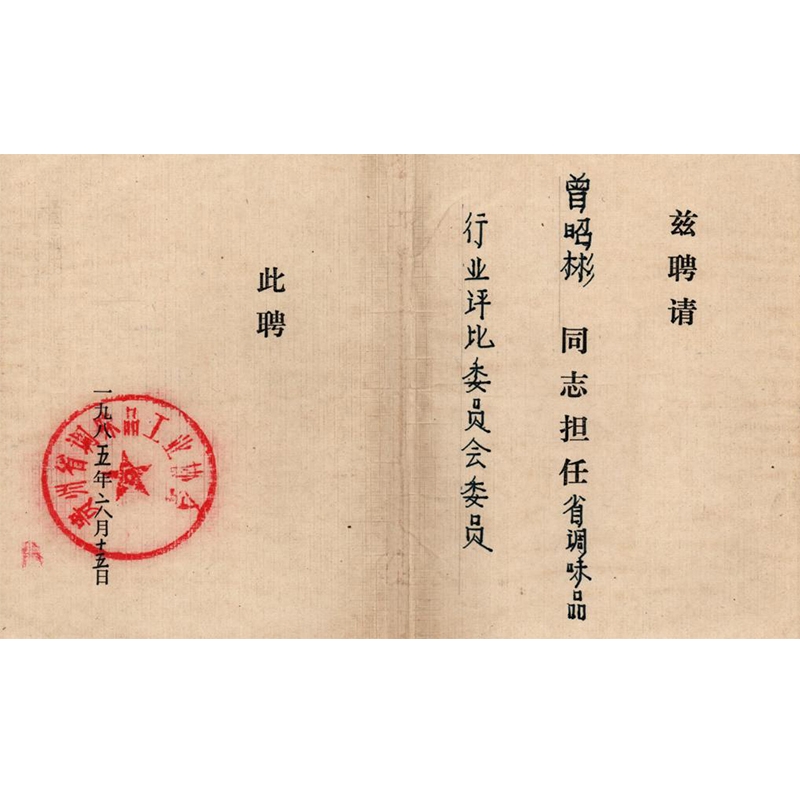 兹聘请
曾昭彬 同志担任省调味品
行业评比委员会委员
此聘
一九八五年六月十五日
贵州省调味品工业协会